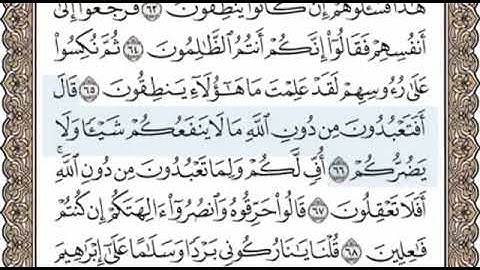 هَٰذَا فَسْـَٔلُوهُمْ إِن كَانُوا۟ يَنطِقُونَ ٦٣ فَرَجَعُوٓا۟ إِلَىٰٓ
أَنفُسِهِمْ فَقَالُوٓا۟ إِنَّكُمْ أَنتُمُ ٱلظَّٰلِمُونَ ٦٤ ثُمَّ نُكِسُوا۟
عَلَىٰ رُءُوسِهِمْ لَقَدْ عَلِمْتَ مَا هَٰٓؤُلَآءِ يَنطِقُونَ ٦٥ قَالَ
أَفَتَعْبُدُونَ مِن دُونِ ٱللَّهِ مَا لَا يَنفَعُكُمْ شَيْـًٔا وَلَا
يَضُرُّكُمْ ٦٦ أُفٍّ لَّكُمْ وَلِمَا تَعْبُدُونَ مِن دُونِ ٱللَّهِ ۖ
أَفَلَا تَعْقِلُونَ ٦٧ قَالُوا۟ حَرِّقُوهُ وَٱنصُرُوٓا۟ ءَالِهَتَكُمْ إِن كُنتُمْ
فَٰعِلِينَ ٦٨ قُلْنَا يَٰنَارُ كُونِى بَرْدًا وَسَلَٰمًا عَلَىٰٓ إِبْرَٰهِيمَ